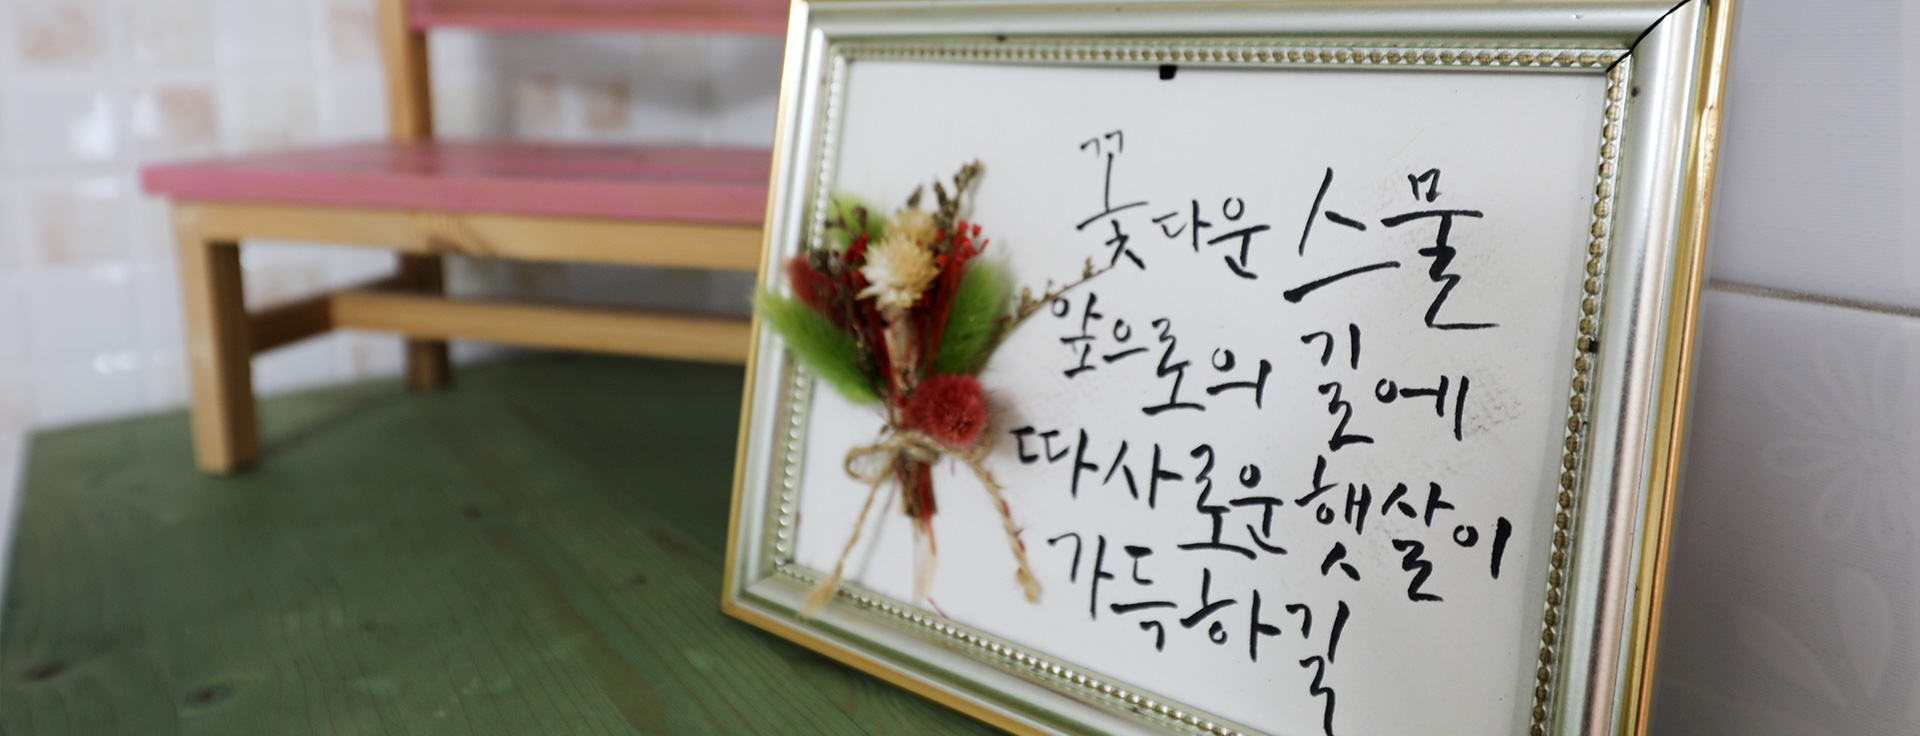 꽃다운 스물
앞으로의 길에
따사로운 햇살이
가득하길